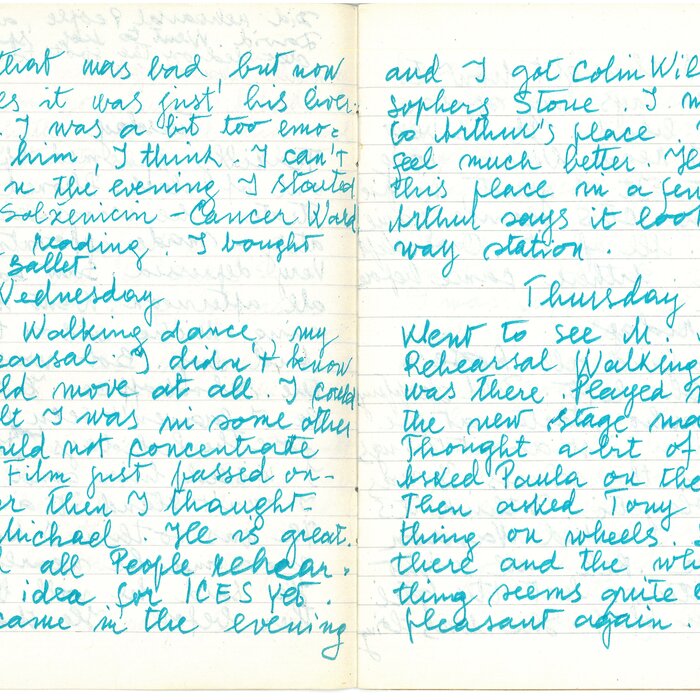 that was bad, but now
es it was just his liver.
. I was a bit too emo=
him, I think. I can't
n the evening I started
Solzenicin - Cancer Ward
reading. I bought
Ballet.
Wednesday
Walking dance, my
earsal. I didn't know
ld move at all. I could
lt I was in some other
uld not concentrate
Film just passed on-
er then I thought-
Michael. He is great.
all People rehear.
idea for ICES yet.
came in the evening
and I got Colin Wil
sophers Stone. I w
to Arthur's place.
feel much better. He
this place in a few
Arthur says it loo
way station.
Thursday
Went to see M.
Rehearsal Walking
was there. Played
the new stage ma
Thought a bit of
Asked Paula on the
Then asked Tony
thing on wheels.
there and the wh
thing seems quite
pleasant again.